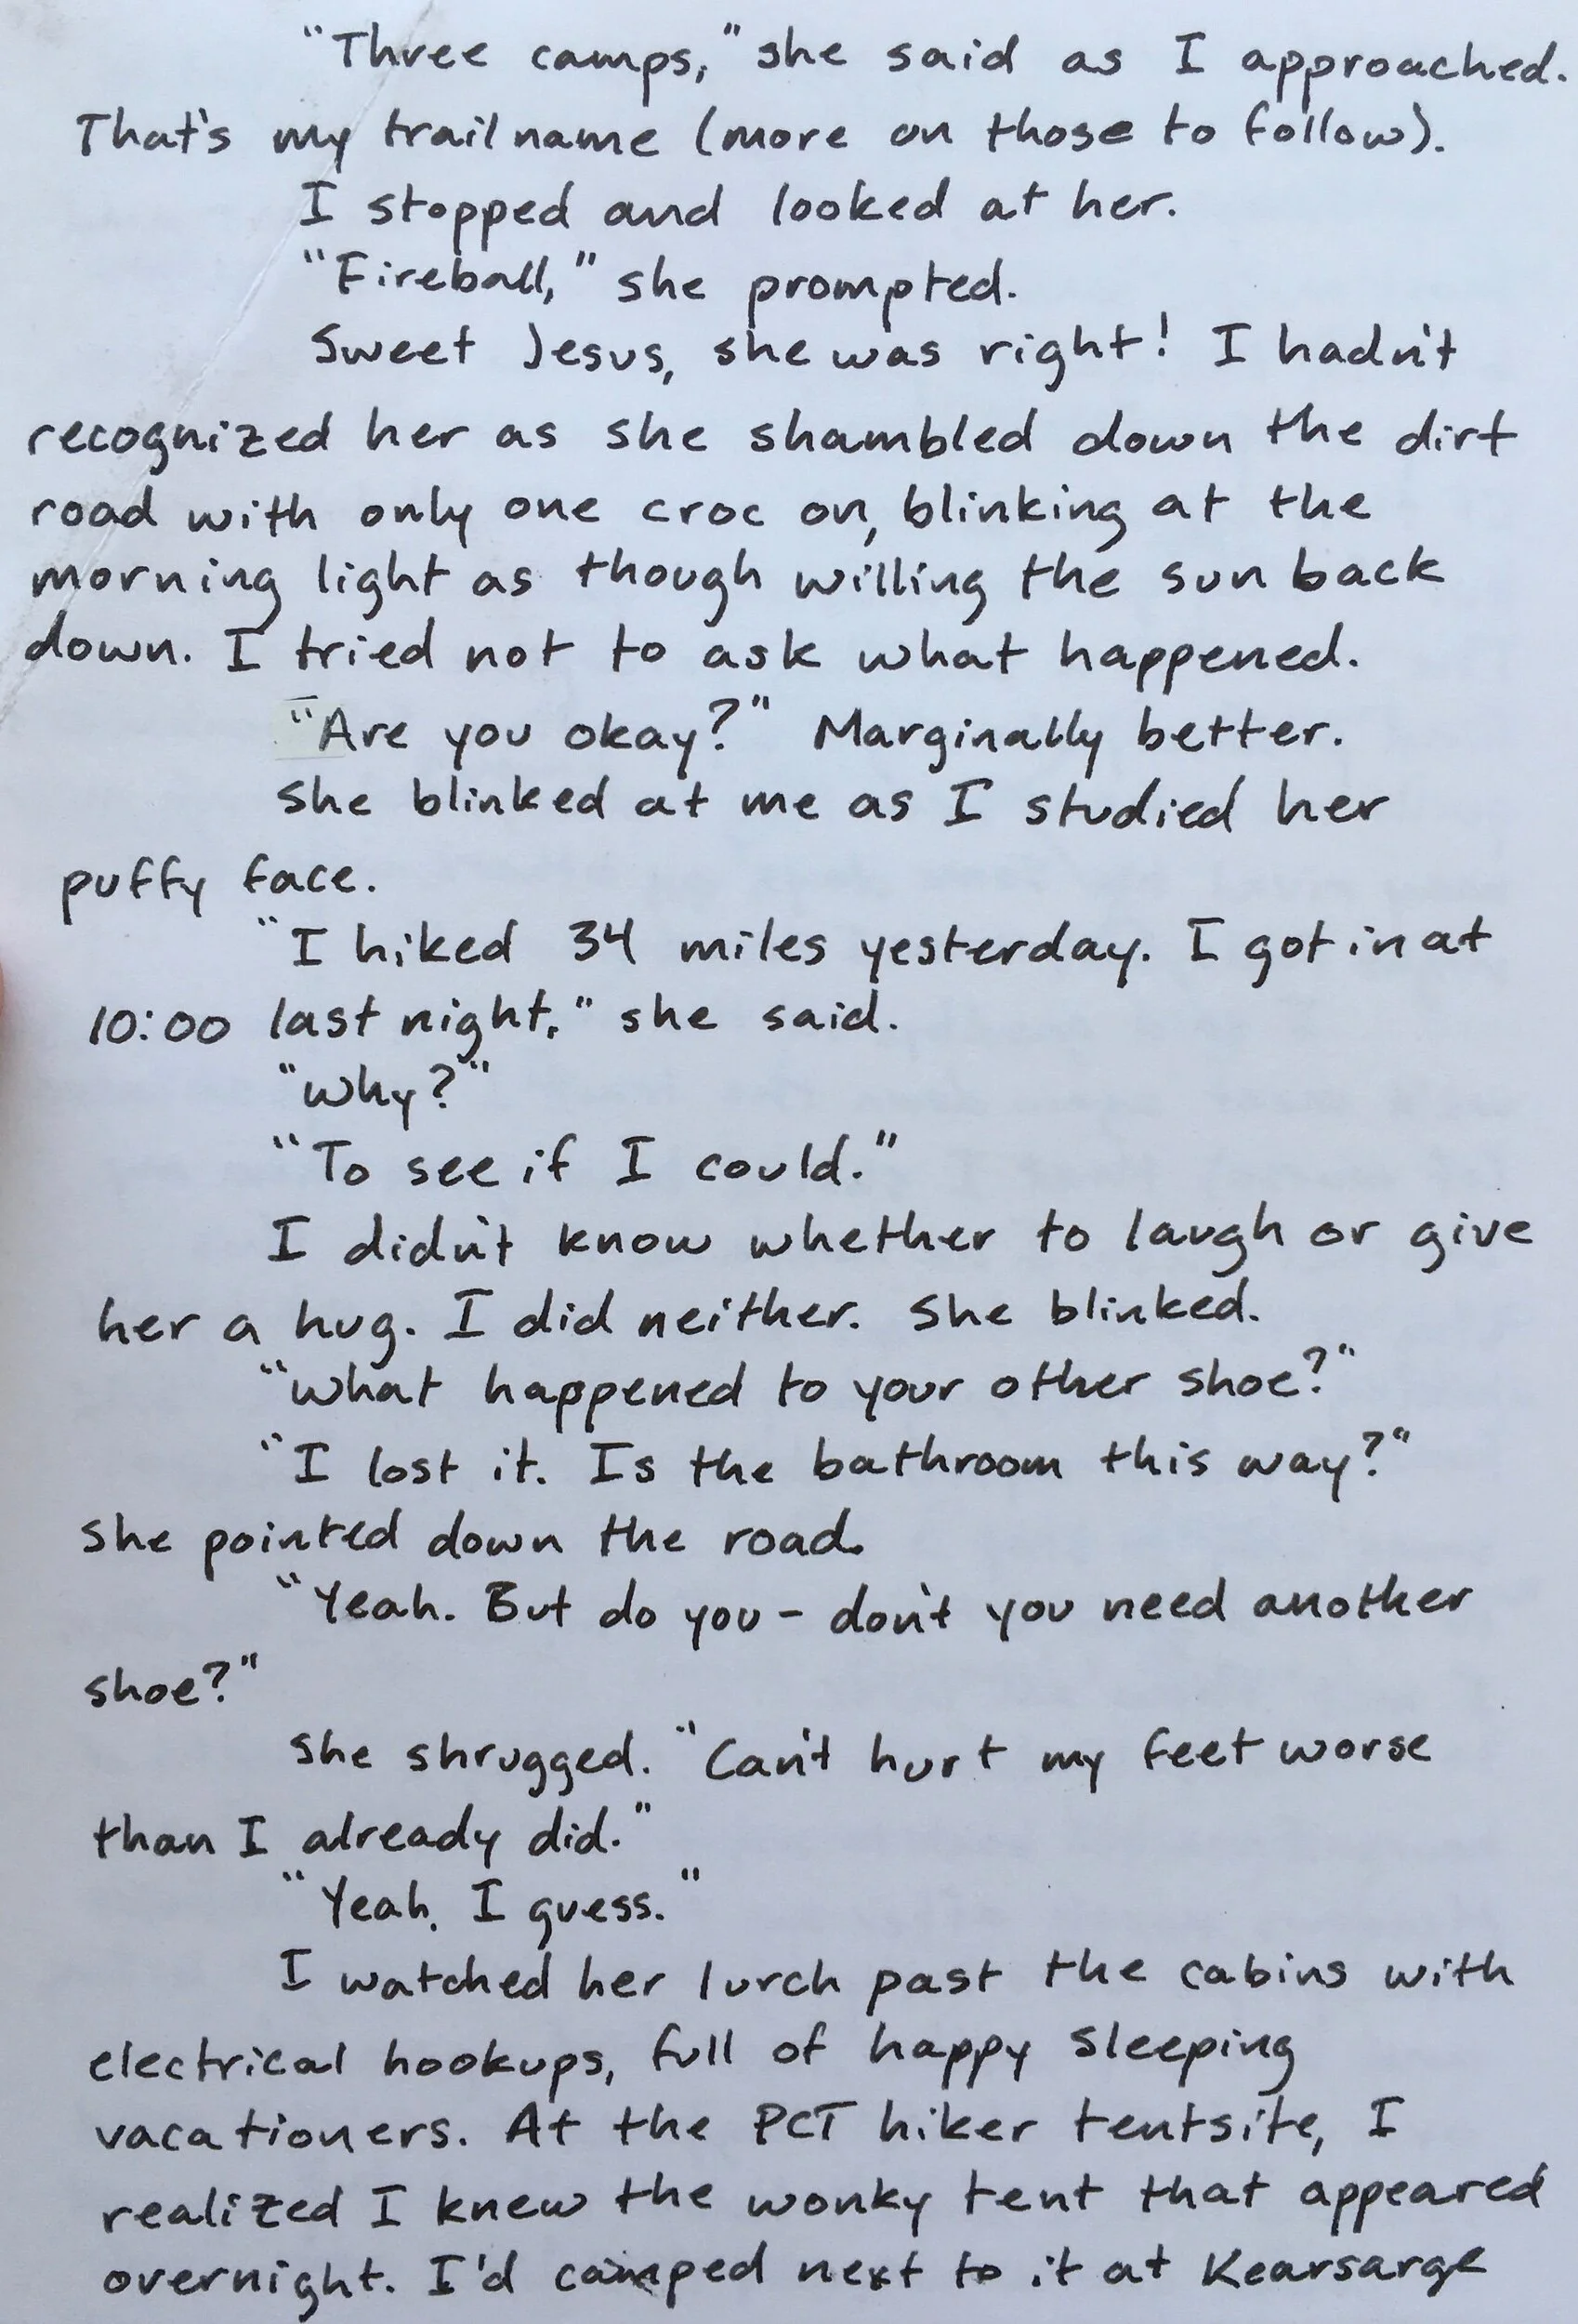 "Three camps," she said as I approached.
That's my trail name (more on those to follow).
I stopped and looked at her.
"Fireball," she prompted.
Sweet Jesus, she was right! I hadn't
recognized her as she shambled down the dirt
road with only one croc on, blinking at the
morning light as though willing the sun back
down. I tried not to ask what happened.
"Are you okay?" Marginally better.
She blinked at me as I studied her
puffy face.
"I hiked 34 miles yesterday. I got in at
10:00 last night," she said.
"Why?"
"To see if I could."
I didn't know whether to laugh or give
her a hug. I did neither. She blinked.
"What happened to your other shoe?"
"I lost it. Is the bathroom this way?"
She pointed down the road.
"Yeah. But do you - don't you need another
shoe?"
She shrugged. "Can't hurt my feet worse
than I already did."
"Yeah. I guess."
I watched her lurch past the cabins with
electrical hookups, full of happy sleeping
vacationers. At the PCT hiker tentsite, I
realized I knew the wonky tent that appeared
overnight. I'd camped next to it at Kearsarge